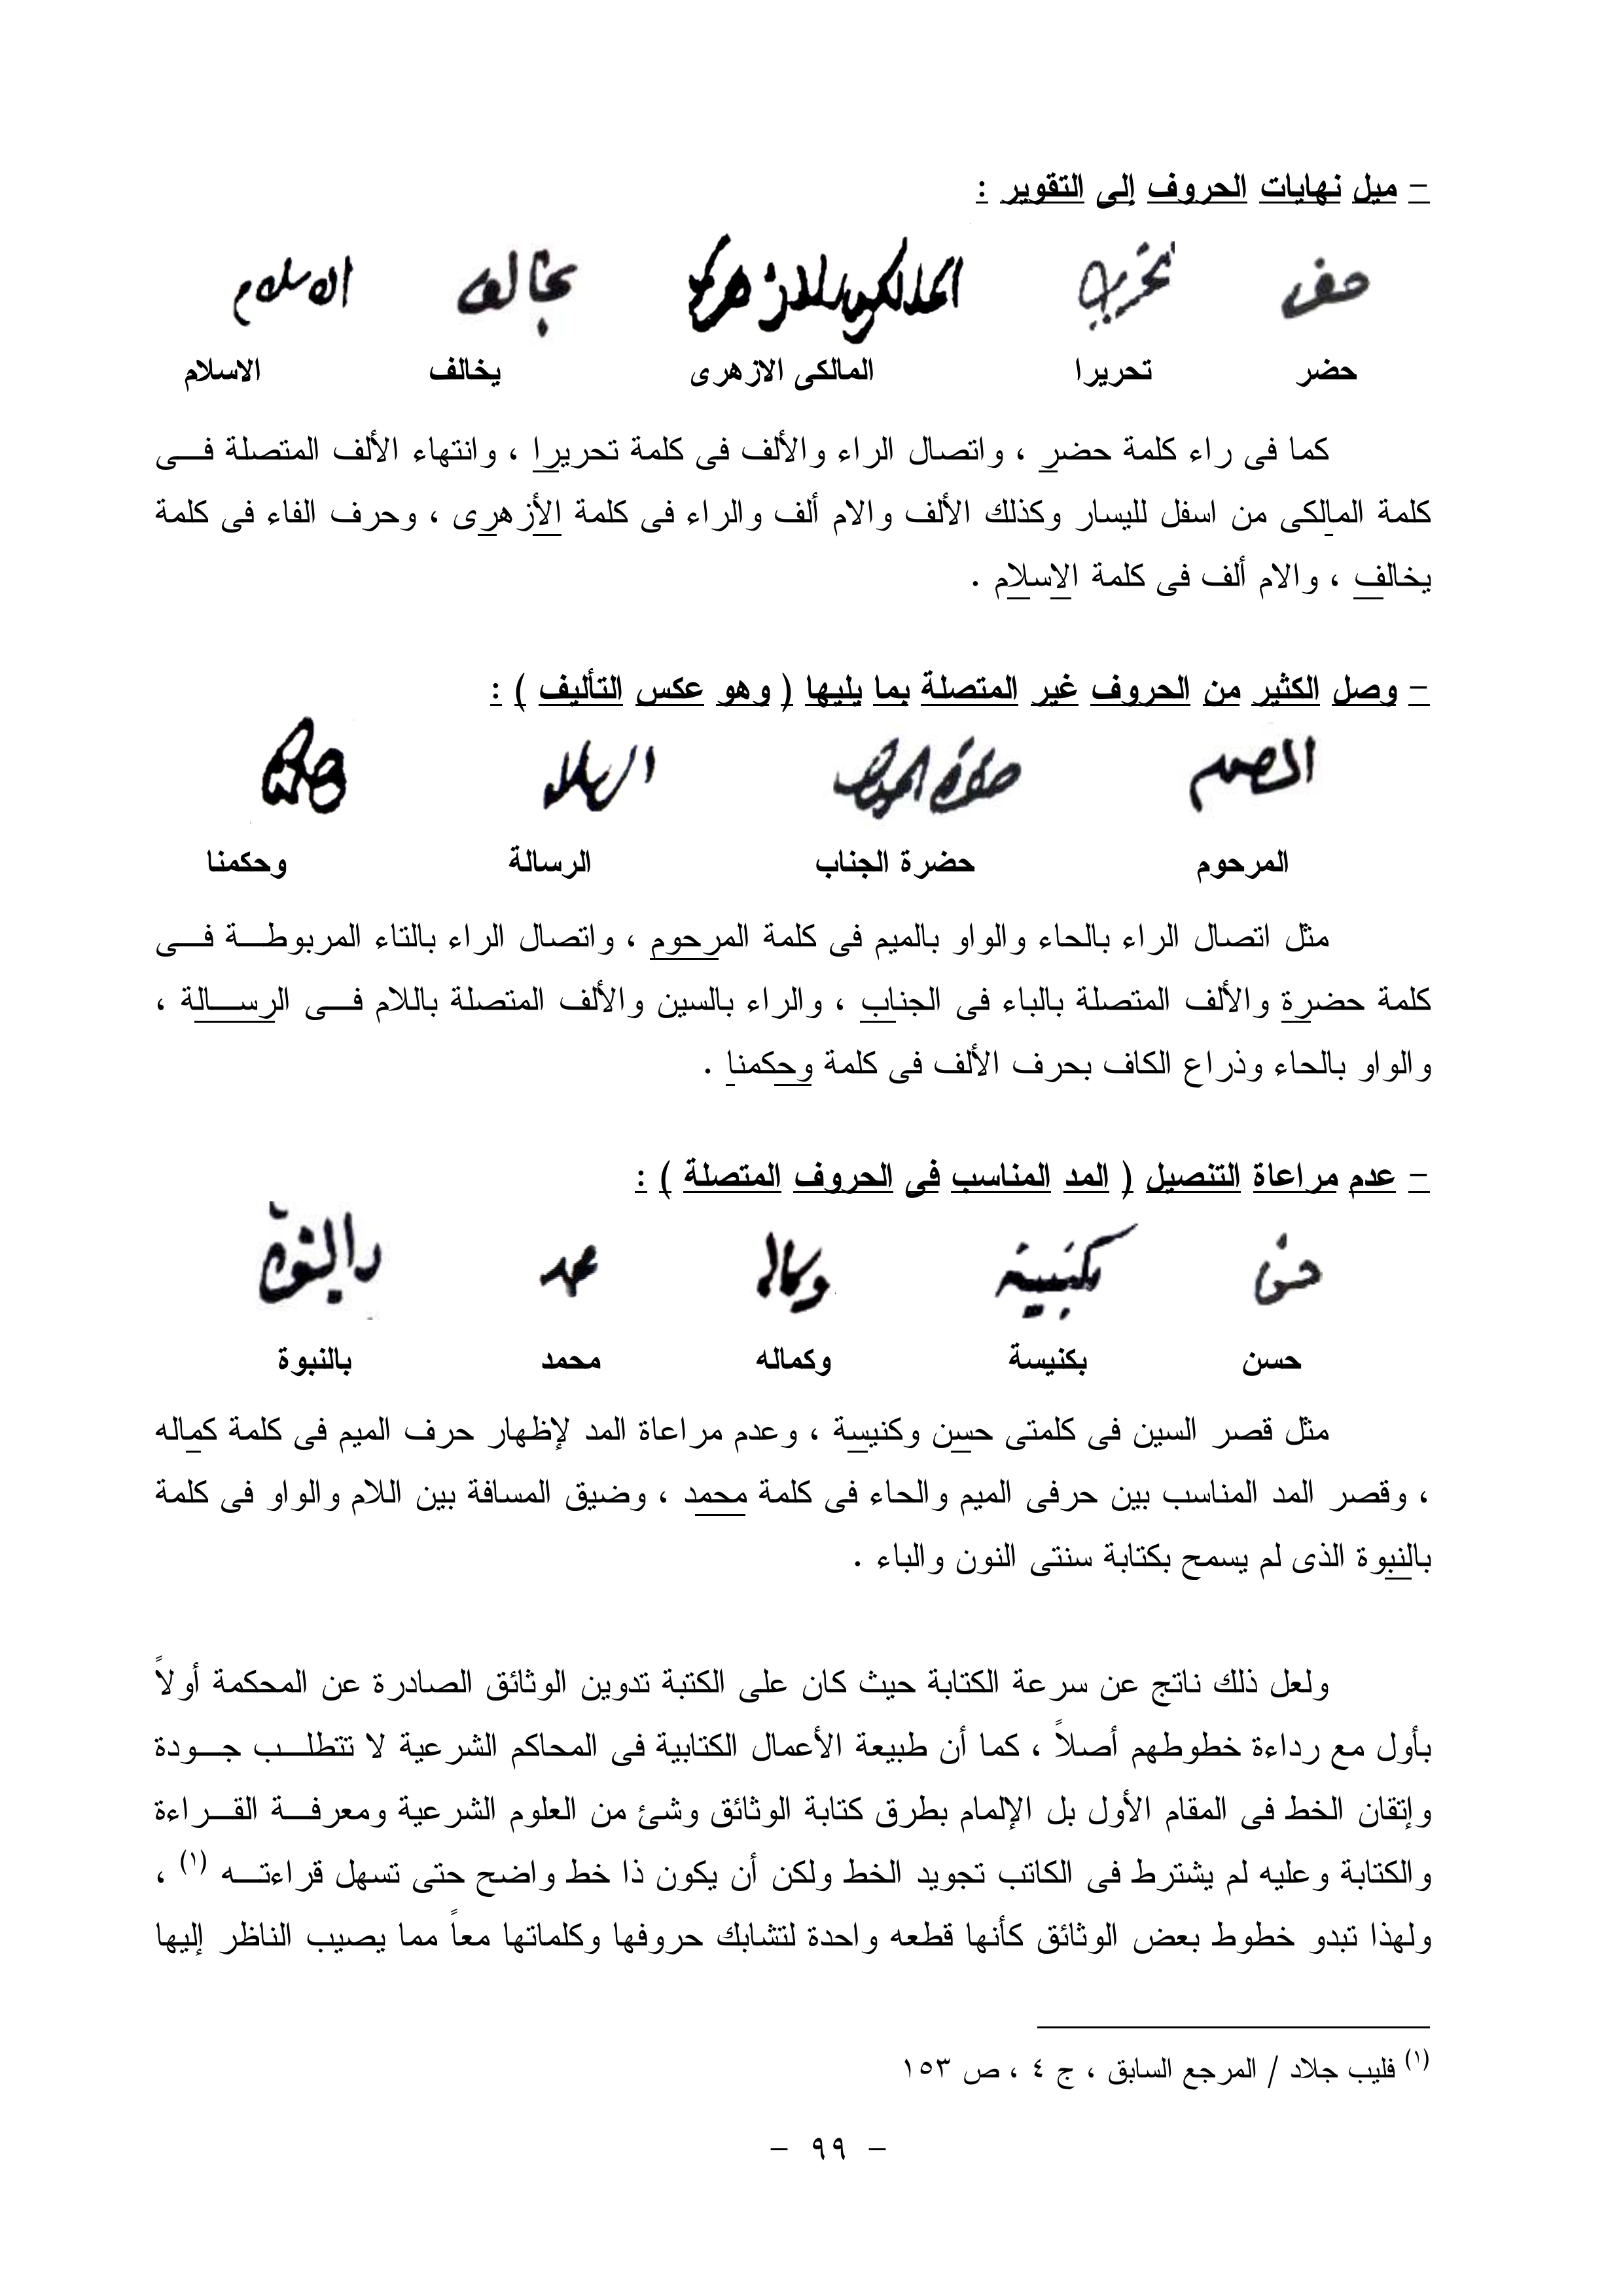 – ميل نهايات الحروف إلى التقوير :
حضر تحريرا المالكى الازهرى يخالف الاسلام
كما فى راء كلمة حضر ، واتصال الراء والألف فى كلمة تحريرا ، وانتهاء الألف المتصلة فـــى
كلمة المالكى من اسفل لليسار وكذلك الألف والام ألف والراء فى كلمة الأزهرى ، وحرف الفاء فى كلمة
يخالف ، والام ألف فى كلمة الاسلام .
– وصل الكثير من الحروف غير المتصلة بما يليها ( وهو عكس التأليف ) :
المرحوم حضرة الجناب الرسالة وحكمنا
مثل اتصال الراء بالحاء والواو بالميم فى كلمة المرحوم ، واتصال الراء بالتاء المربوطـــة فـــى
كلمة حضرة والألف المتصلة بالباء فى الجناب ، والراء بالسين والألف المتصلة باللام فـــى الرســـالة ،
والواو بالحاء وذراع الكاف بحرف الألف فى كلمة وحكمنا .
– عدم مراعاة التنصيل ( المد المناسب فى الحروف المتصلة ) :
حسن بكنيسة وكماله محمد بالنبوة
مثل قصر السين فى كلمتى حسن وكنيسة ، وعدم مراعاة المد لإظهار حرف الميم فى كلمة كماله
، وقصر المد المناسب بين حرفى الميم والحاء فى كلمة محمد ، وضيق المسافة بين اللام والواو فى كلمة
بالنبوة الذى لم يسمح بكتابة سنتى النون والباء .
ولعل ذلك ناتج عن سرعة الكتابة حيث كان على الكتبة تدوين الوثائق الصادرة عن المحكمة أولاً
بأول مع رداءة خطوطهم أصلاً ، كما أن طبيعة الأعمال الكتابية فى المحاكم الشرعية لا تتطلـــب جـــودة
وإتقان الخط فى المقام الأول بل الإلمام بطرق كتابة الوثائق وشئ من العلوم الشرعية ومعرفـــة القـــراءة
والكتابة وعليه لم يشترط فى الكاتب تجويد الخط ولكن أن يكون ذا خط واضح حتى تسهل قراءتـــه (١) ،
ولهذا تبدو خطوط بعض الوثائق كأنها قطعه واحدة لتشابك حروفها وكلماتها معاً مما يصيب الناظر إليها
(١) فليب جلاد / المرجع السابق ، ج ٤ ، ص ١٥٣
– ٩٩ –